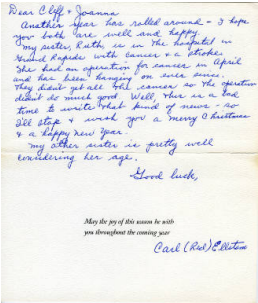 Dear Cliff & Joanna
Another year has rolled around - I hope
you both are well and happy.
My sister, Ruth, is in the hospital in
Grand Rapids with cancer & a stroke.
She had an operation for cancer in April
and has been hanging on ever since.
They didn't get all the cancer so the operation
didn't do much good. Well, this is a bad
time to write that kind of news - so
I'll stop & wish you a Merry Christmas
& a happy New Year.
My other sister is pretty well
considering her age.
Good luck,
May the joy of this season be with
you throughout the coming year
Carl (Red) Ellstrom